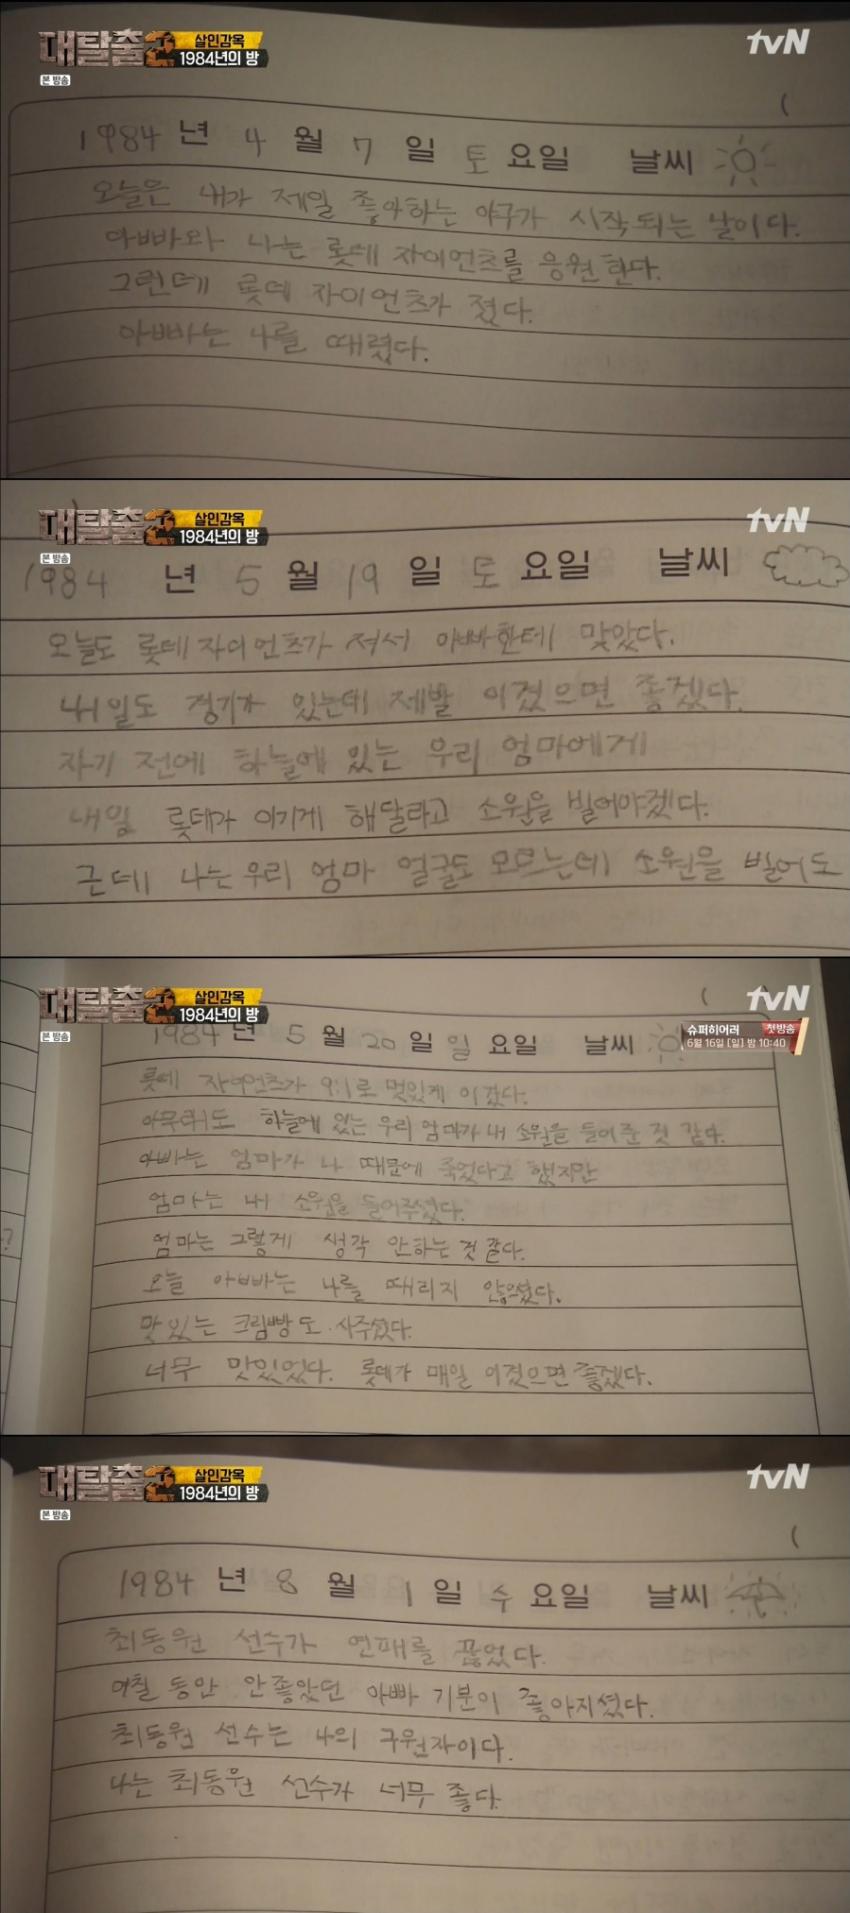 대탈출2
살인감옥
1984년의 방
본 방송
tvN
1984년 4월 7일 토요일 날씨
오늘은 내가 제일 좋아하는 야구가 시작되는 날이다.
아빠와 나는 롯데 자이언츠를 응원한다.
그런데 롯데 자이언츠가 졌다.
아빠는 나를 때렸다.
대탈출2
살인감옥
1984년의 방
본 방송
tvN
1984년 5월 19일 토요일 날씨
오늘도 롯데 자이언츠가 져서 아빠한테 맞았다.
내일도 경기가 있는데 제발 이겼으면 좋겠다.
자기 전에 하늘에 있는 우리 엄마에게
내일 롯데가 이기게 해달라고 소원을 빌어야겠다.
근데 나는 우리 엄마 얼굴도 모르는데 소원을 빌어도
대탈출2
살인감옥
1984년의 방
본 방송
tvN
슈퍼히어러 첫방송
6월 16일 [일] 밤 10:40
1984년 5월 20일 일요일 날씨
롯데 자이언츠가 9:1로 멋있게 이겼다.
아무래도 하늘에 있는 우리 엄마가 내 소원을 들어준 것 같다.
아빠는 엄마가 나 때문에 죽었다고 했지만
엄마는 내 소원을 들어주셨다.
엄마는 그렇게 생각 안하는 것 같다.
오늘 아빠는 나를 때리지 않으셨다.
맛있는 크림빵도 사주셨다.
너무 맛있었다. 롯데가 매일 이겼으면 좋겠다.
?
대탈출2
살인감옥
1984년의 방
본 방송
tvN
1984년 8월 1일 수요일 날씨
최동원 선수가 연패를 끊었다.
며칠 동안 안좋았던 아빠 기분이 좋아지셨다.
최동원 선수는 나의 구원자이다.
나는 최동원 선수가 너무 좋다.